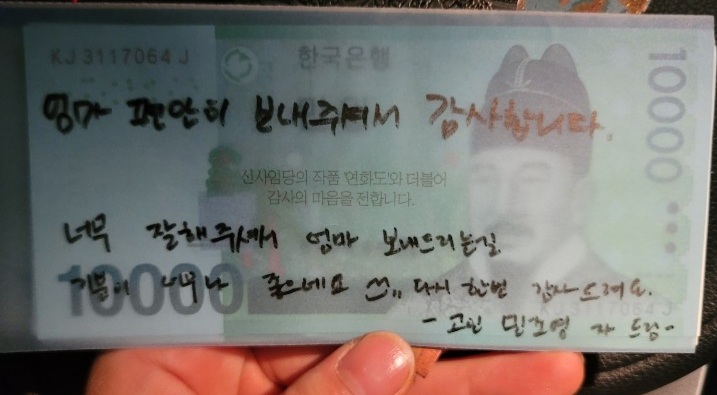 KJ 3117064 J
한국은행
10000
엄마 편안히 보내주셔서 감사합니다.
신사임당의 작품 '연화도'와 더불어
감사의 마음을 전합니다.
너무 잘해주셔서 엄마 보내드리는길
기분이 너무나 좋으네요 다시 한번 감사드려요.
10000
KJ 3117064 J
- 고인 민조영 자 드림 -